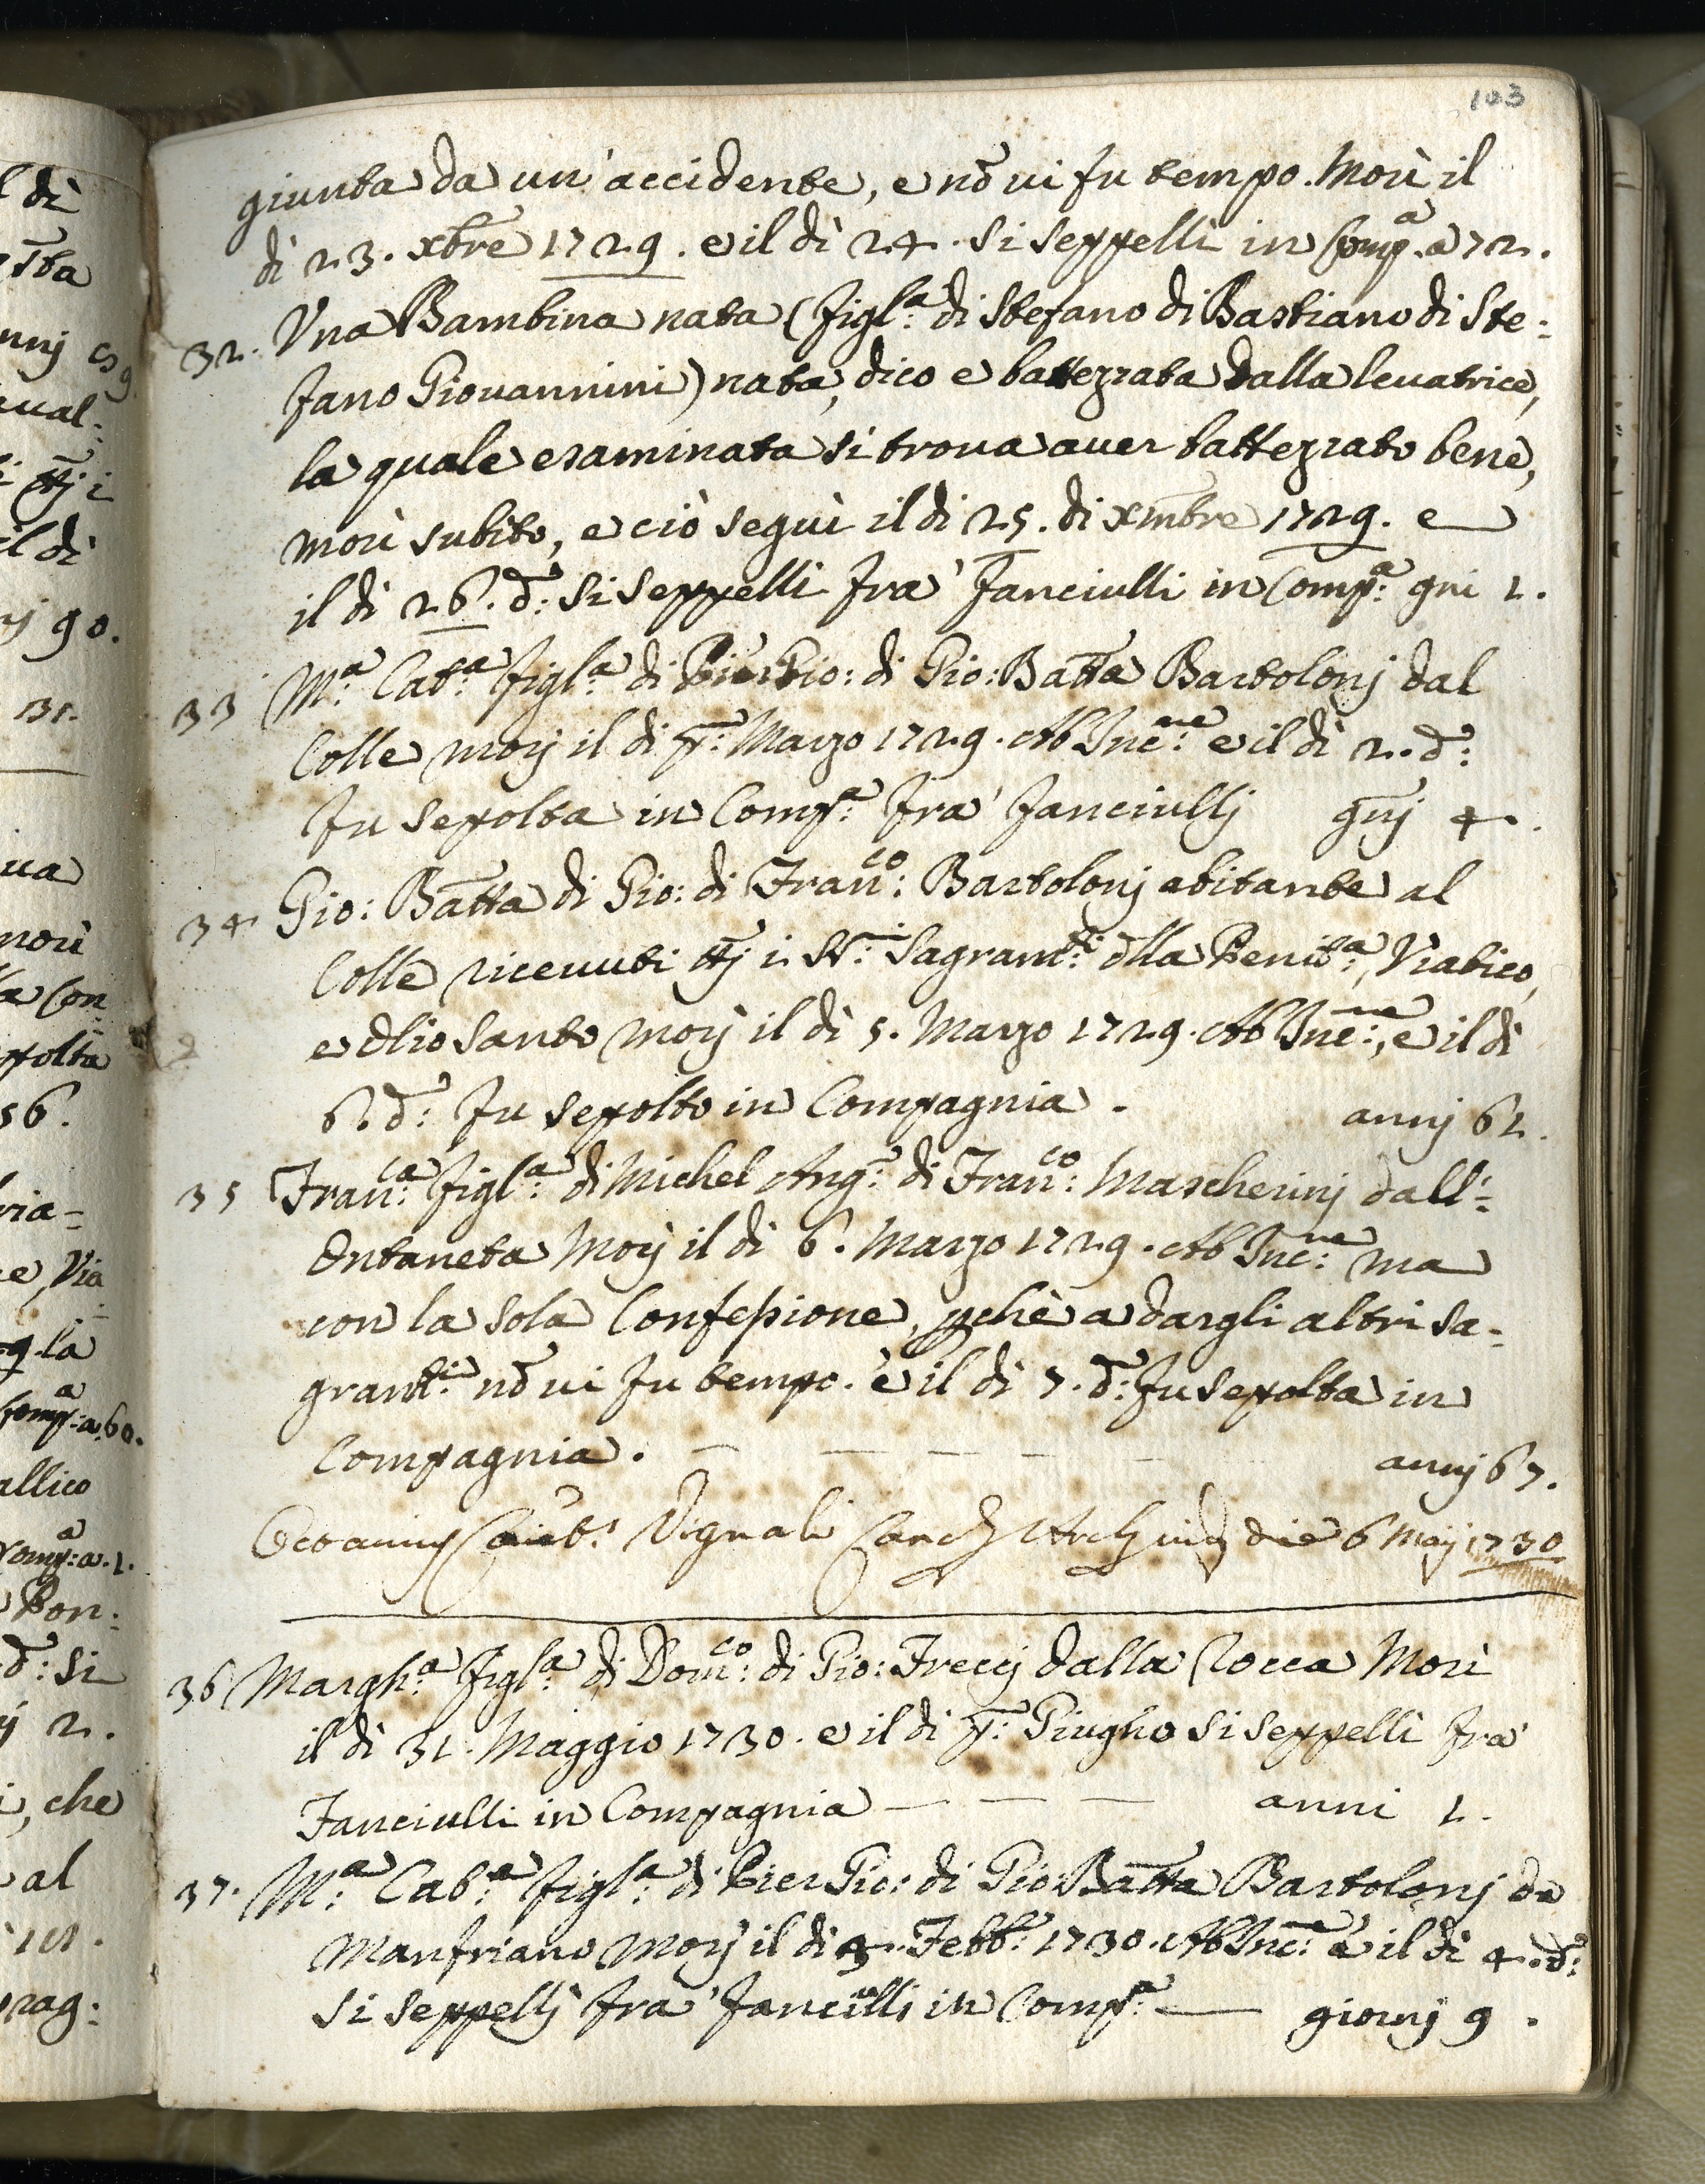 103
l dì
giunta da un' accidente, e nō ui fu tempo. Morì il
dì 23. xbre 1729. e il dì 24. si seppellì in Comp.ª a 72.
32. Vna Bambina nata (figl:ª di Stefano di Bastiano di Ste:
fano Giovannini) nata, dico e battezzata dalla leuatrice,
la quale esaminata si trova auer battezzato bene,
morì subito, e ciò seguì il dì 25. di xmbre 1729. e
il dì 26. d:º si seppellì fra' fanciulli in Comp:ª gni 1.
33 M:ª Cat:ª figl:ª di Pier Gio: di Gio: Batta Bartolonj dal
Colle morj il di p:º Marzo 1729. Ab Inc:ne e il dì 2. d:º
fu sepolta in Comp:ª fra' fanciullj gnj 4.
34 Gio: Batta di Gio: di Fran:co Bartolonj abitante al
Colle riceuuti ttj i SS:i Sagram:ti dlla Penit:ª, Viatico,
e Olio Santo morj il dì 5. Marzo 1729. Ab Inc:ne, e il dì
6. d:º fu sepolto in Compagnia. annj 61.
35 Fran:ca figl:ª di Michel Ang:º di Fran:co Mascherinj dall'=
Ontaneta Morj il dì 6. Marzo 1729. Ab Inc:ne ma
con la sola Confessione, pchè a dargli altri Sa=
gram:ti nō ui fu tempo. è il dì 7. d:º fu sepolta in
Compagnia. — — — — annj 67.
Vignali die 6 Maij 1730
36 Margh:ª figl:ª di Dom:co di Gio: Freccj dalla Rocca Morì
il dì 31. Maggio 1730. e il di p:º Giugno si seppellì fra'
Fanciulli in Compagnia — — — anni 1.
37. M:ª Cat:ª figl:ª di Pier Gio: di Gio: Batta Bartolonj da
Manfriano Morj il di 3. Febb:º 1730. Ab Inc:ne e il di 4. d:º
si seppellj fra' fanciulli in Comp:ª — giornj 9.